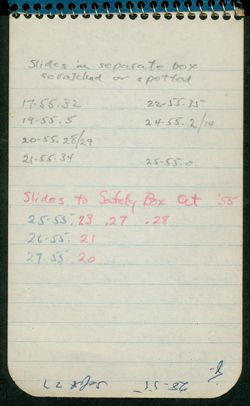 Slides in separate box
scratched or spotted
17-55.32 22-55.35
19-55.5 24-55.2/14
20-55.28/29
21-55.34 25-55.0
Slides to Safety Box Oct '55
25-55.23 .27 .28
26-55.21
27-55.20
28-55